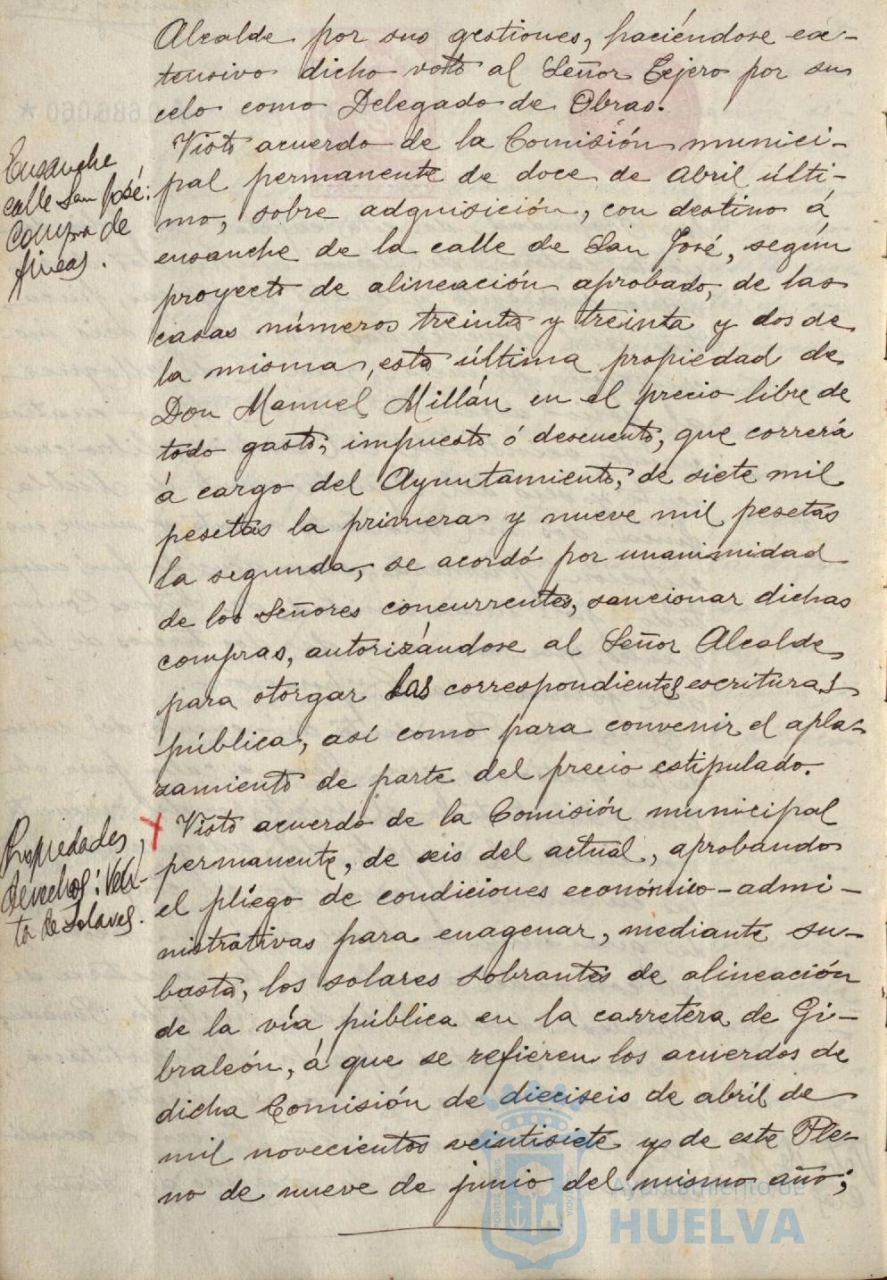 Alcalde por sus gestiones, haciéndose ex-
tensivo dicho voto al Señor Tejero por su
celo como Delegado de Obras.
Ensanche
calle San José:
Compra de
fincas.
Visto acuerdo de la Comisión munici-
pal permanente de doce de Abril últi-
mo, sobre adquisición, con destino á
ensanche de la calle de San José, según
proyecto de alineación aprobado, de las
casas números treinta y treinta y dos de
la misma, esta última propiedad de
Don Manuel Millán en el precio libre de
todo gasto, impuesto ó descuento, que correrá
á cargo del Ayuntamiento, de siete mil
pesetas la primera y nueve mil pesetas
la segunda, se acordó por unanimidad
de los Señores concurrentes, sancionar dichas
compras, autorizándose al Señor Alcalde
para otorgar las correspondientes escrituras
pública, así como para convenir el apla-
zamiento de parte del precio estipulado.
Propiedades,
derechos: Ven-
ta de Solares.
Visto acuerdo de la Comisión municipal
permanente, de seis del actual, aprobando
el pliego de condiciones económico-admi-
nistrativas para enagenar, mediante su-
basta, los solares sobrantes de alineación
de la vía pública en la carretera de Gi-
braleón, á que se refieren los acuerdos de
dicha Comisión de dieciseis de abril de
mil novecientos veintisiete y de este Ple-
no de nueve de junio del mismo año;
Ayuntamiento de
HUELVA